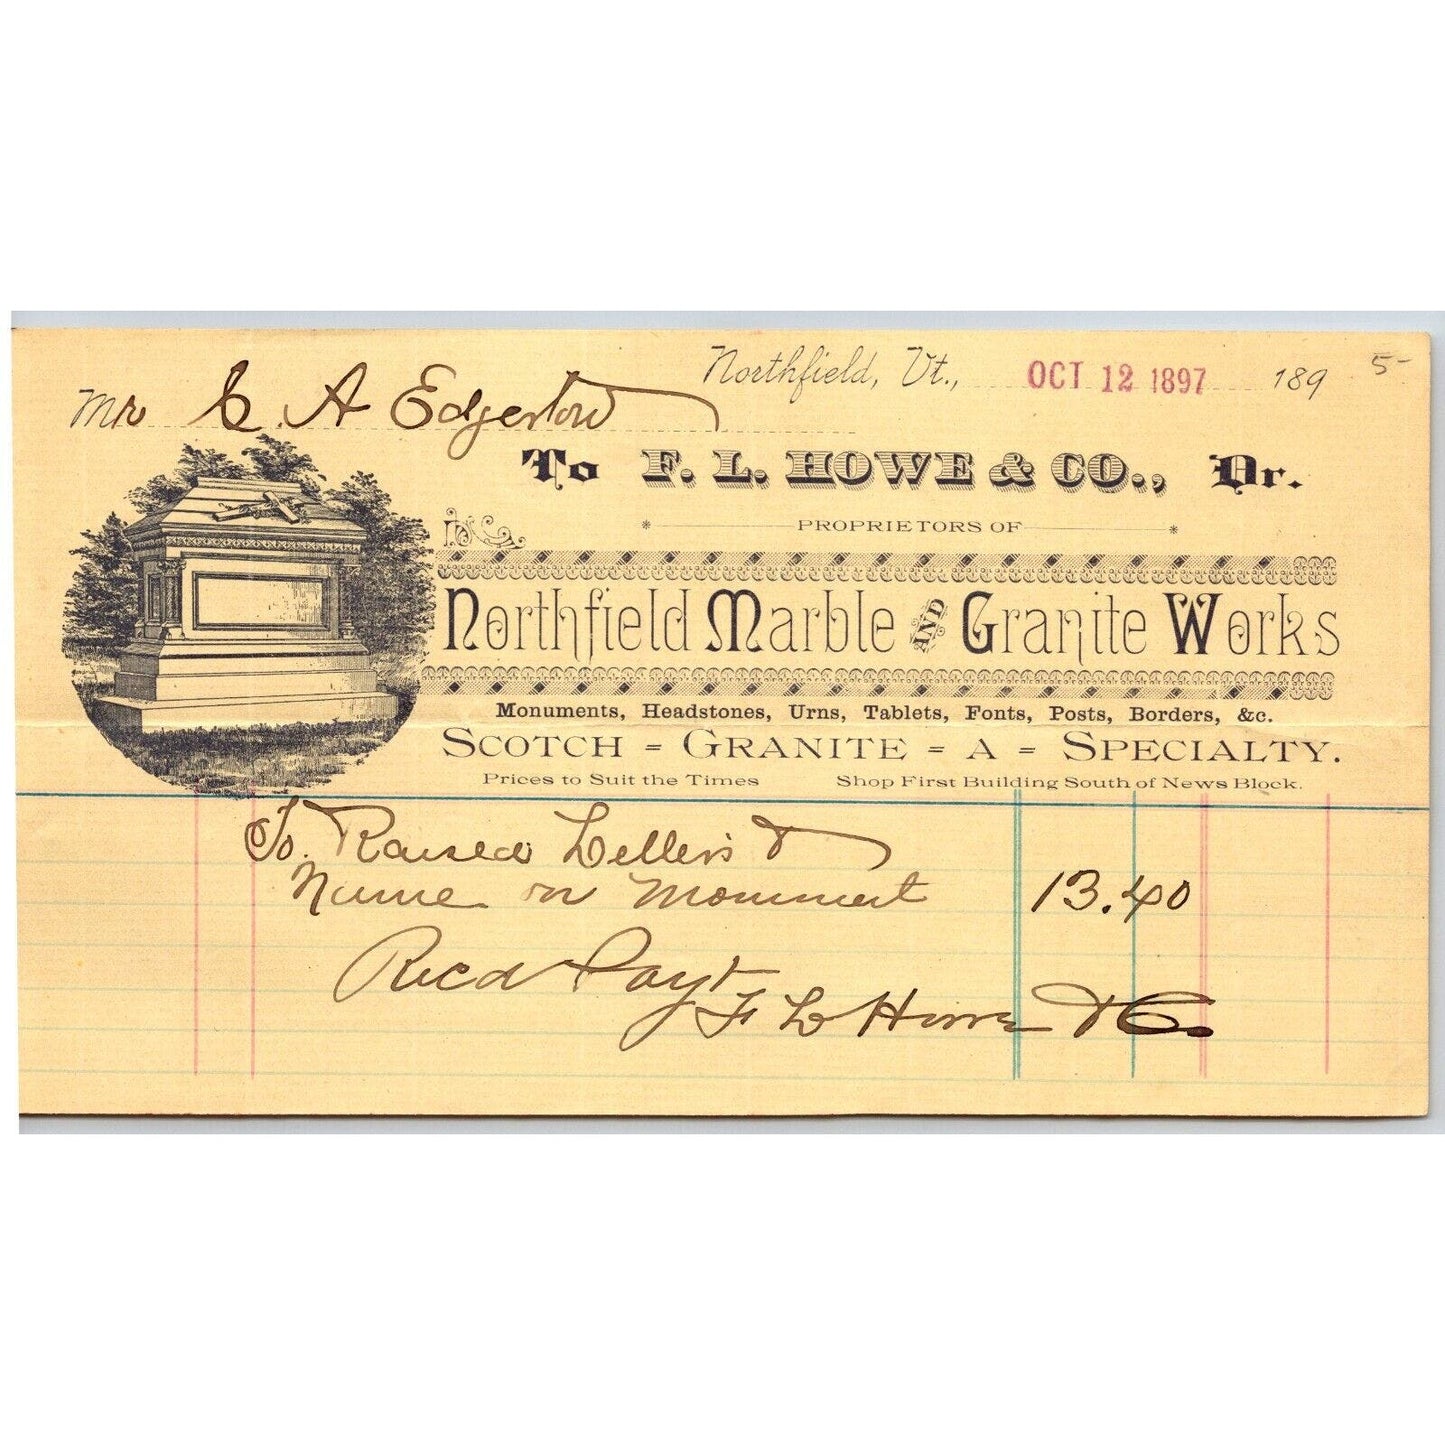 Northfield, Vt., OCT 12 1897 189 5-
Mr C. A Edgerton
To F. L. HOWE & CO., Dr.
PROPRIETORS OF
Northfield Marble AND Granite Works
Monuments, Headstones, Urns, Tablets, Fonts, Posts, Borders, &c.
SCOTCH = GRANITE = A = SPECIALTY.
Prices to Suit the Times Shop First Building South of News Block.
To Raised Letters &
Name on Monument 13.40
Recd Payt
F L Howe & Co